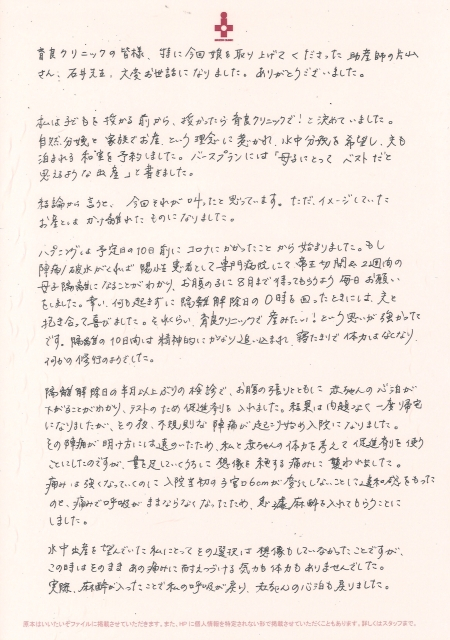 育良クリニックの皆様、特に今回娘を取り上げてくださった助産師の片山
さん、石井先生、大変お世話になりました。ありがとうございました。
私は子どもを授かる前から、授かったら育良クリニックで！と決めていました。
自然分娩と家族でお産、という理念に惹かれ、水中分娩を希望し、夫も
泊まれる和室を予約しました。バースプランには「母子にとってベストだと
思えるような出産」と書きました。
結論から言うと、今回それが叶ったと思っています。ただ、イメージしていた
お産とはかけ離れたものになりました。
ハプニングは予定日の10日前にコロナにかかったことから始まりました。もし
陣痛/破水がくれば陽性患者として専門病院にて帝王切開&2週間の
母子隔離になることがわかり、お腹の子に8日まで待ってもらうよう毎日お願い
をしました。幸い、何も起きずに隔離解除日の0時を回ったときには、夫と
抱き合って喜びました。それくらい、育良クリニックで産みたい！という思いが強かった
です。隔離の10日間は精神的にかなり追い込まれ、寝たきりで体力はなくなり、
何かの修行のようでした。
隔離解除日の半月以上ぶりの検診で、お腹の張りとともに赤ちゃんの心泊が
下がることがわかり、テストのため促進剤を入れました。結果は問題なく一度帰宅
になりましたが、その後、不規則な陣痛が起こり始め入院になりました。
その陣痛が明け方には遠のいたため、私と赤ちゃんの体力を考えて促進剤を使う
ことにしたのですが、量を足していくうちに想像を絶する痛みに襲われました。
痛みは強くなっていくのに入院当初の子宮口6cmが変化しないことに違和感をもった
のと、痛みで呼吸がままならなくなったため、急遽麻酔を入れてもらうことに
しました。
水中出産を望んでいた私にとってその選択は想像もしていなかったことですが、
この時はそのままあの痛みに耐えつづける気力も体力もありませんでした。
実際、麻酔が入ったことで私の呼吸が戻り、赤ちゃんの心泊も戻りました。
原本はいいたいぞファイルに掲載させていただきます。また、HPに個人情報を特定されない形で掲載させていただくこともあります。詳しくはスタッフまで。